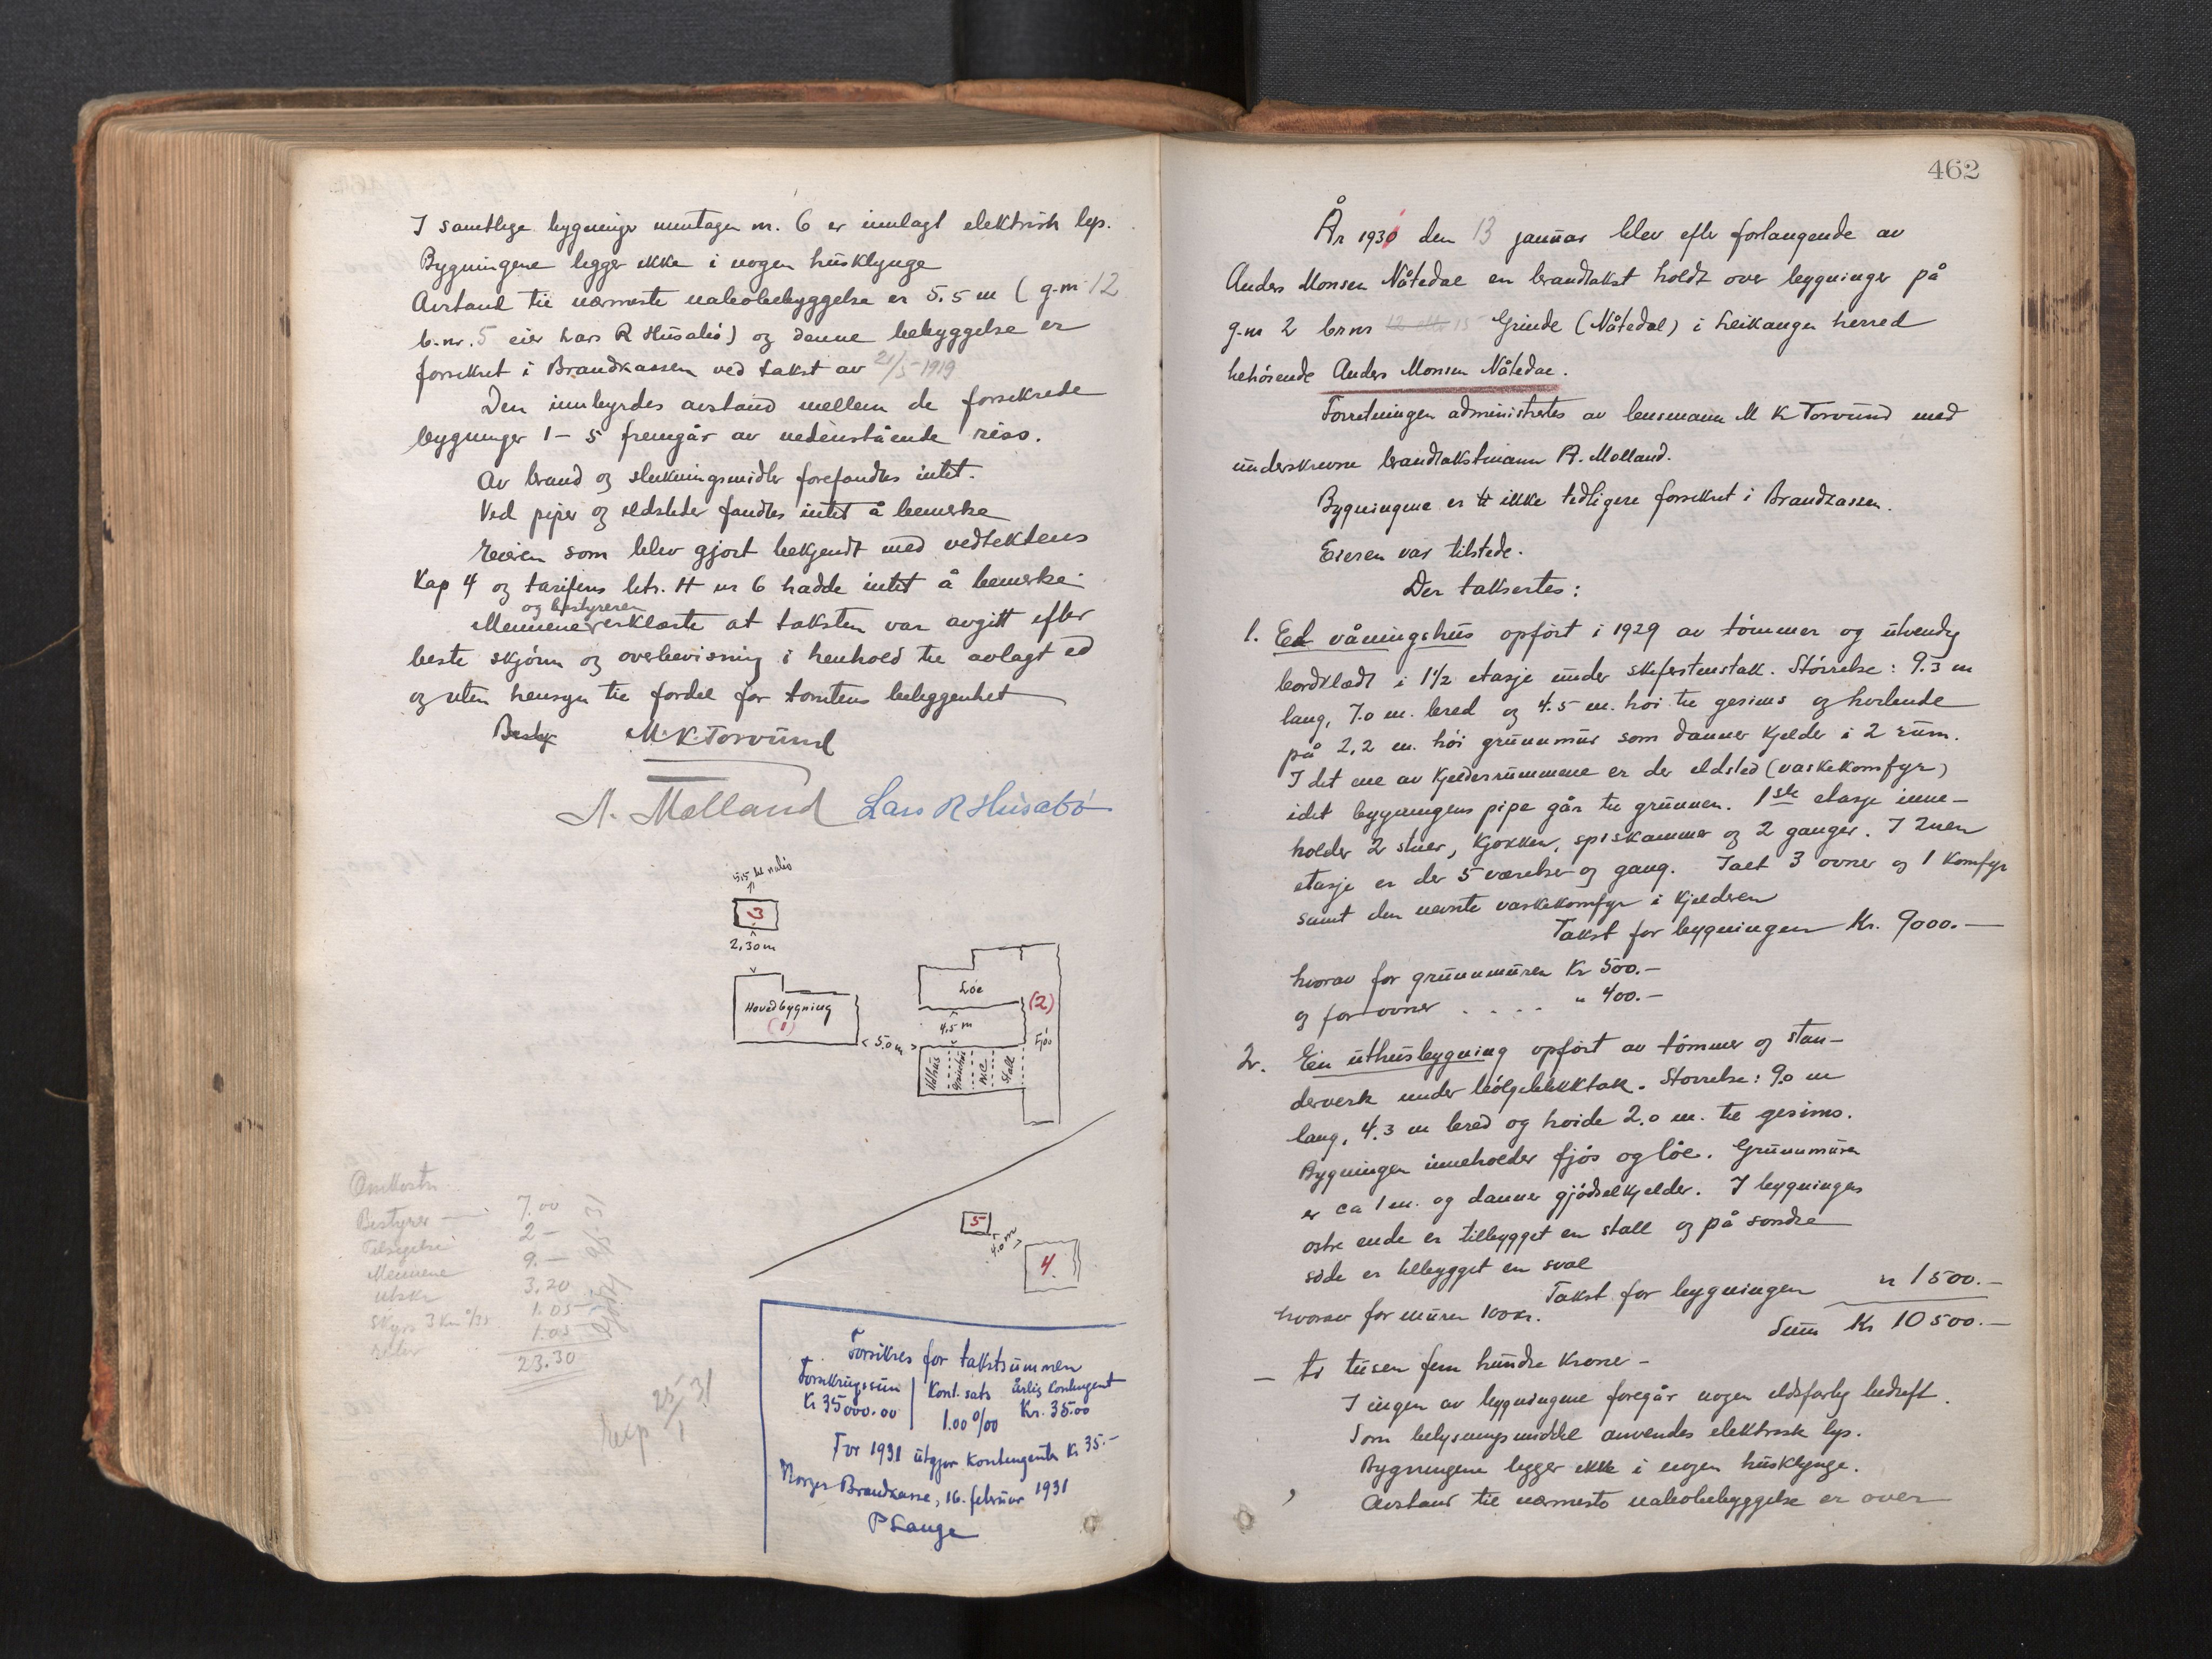 I samtlige bygninger unntagen nr. 6 er innlagt elektrisk lys.
Bygningene ligger ikke i nogen husklynge
Avstand til nærmeste nabobebyggelse er 5.5 m (g.nr 12
b.nr. 5 eier Lars R Husabö) og denne bebyggelse er
forsikret i Brandkassen ved takst av 21/5-1919
Den innbyrdes avstand mellem de forsikrede
bygninger 1-5 fremgår av nedenstående riss.
Av brand og slukningsmidler forefandtes intet.
Ved piper og ildsteder fandtes intet å bemerke
Eieren som blev gjort bekjendt med vedtektens
Kap 4 og tarifens litr. H nr 6 hadde intet å bemerke.
og bestyreren
Mennene erklærte at taksten var avgitt efter
beste skjönn og overbevisning i henhold til avlagt ed
og uten hensyn til fordel for tomtens beliggenhet
Besty M.K.Torvund
A. Melland Lars R Husabö
5.5 til nabo
3
2,30 m
Hovedbygning
(1)
< 5.0 m >
Löe
(2)
4,5 m
Fjös
Vedhus
W.C.
Stall
5
4.0 m
4.
Omkostn.
Bestyrer 7.00
2 -
Mennene 9.-
utskr 3.20
Skyss 3 Km 1.05
1.05
23.30
Exp 25/1 31
Forsikres for takstsummen
Forsikringssum Kont. sats Årlig Kontingent
Kr 35000.00 1.00 0/00 Kr. 35.00
For 1931 utgjør kontingenten Kr 35.-
Norges Brandkasse, 16. februar 1931
P Lange
462
År 1930 den 13 januar blev efter forlangende av
Anders Monsen Nåtedal en brandtakst holdt over bygninger på
g.nr 2 brnr 15 Grinde (Nåtedal) i Leikanger herred
tehörende Anders Monsen Nåtedal.
Forretningen administrertes av lensmann M K Torvund med
underskrevne brandtakstmann A. Melland.
Bygningene er ikke tidligere forsikret i Brandkassen.
Eieren var tilstede.
Der taksertes:
1. Et våningshus opfört i 1929 av tömmer og utvendig
bordklædt i 1 1/2 etasje under skiferstenstak. Störrelse: 9.3 m
lang, 7.0 m. bred og 4.5 m. höi til gesims og hvilende
på 2,2 m. höi grunnmur som danner kjelder i 2 rum.
I det ene av kjelderrummene er der ildsted (vaskekomfyr)
idet bygningens pipe går til grunnen. 1ste etasje inne-
holder 2 stuer, kjökken, spiskammer og 2 ganger. I 2nen
etasje er der 5 værelser og gang. Ialt 3 ovner og 1 komfyr
samt den nevnte vaskekomfyr i kjelderen
Takst for bygningen Kr. 9000.-
hvorav for grunnmuren Kr 500.-
og for ovner . . . . " 400.-
2. En uthusbygning opfört av tömmer og stan-
derverk under bölgeblikktak. Störrelse: 9.0 m
lang, 4.3 m bred og höide 2.0 m. til gesims.
Bygningen inneholder fjös og löe. Grunnmuren
er ca 1 m. og danner gjödselkjelder. I bygningens
östre ende er tilbygget en stall og på söndre
side er tilbygget en sval
Takst for bygningen " 1500.-
hvorav for muren 100 kr.
Sum Kr 10500.-
- ti tusen fem hundre kroner -
I ingen av bygningene foregår nogen ildsfarlig bedrift.
Som belysningsmiddel anvendes elektrisk lys.
Bygningene ligger ikke i nogen husklynge.
Avstand til nærmeste nabobebyggelse er over